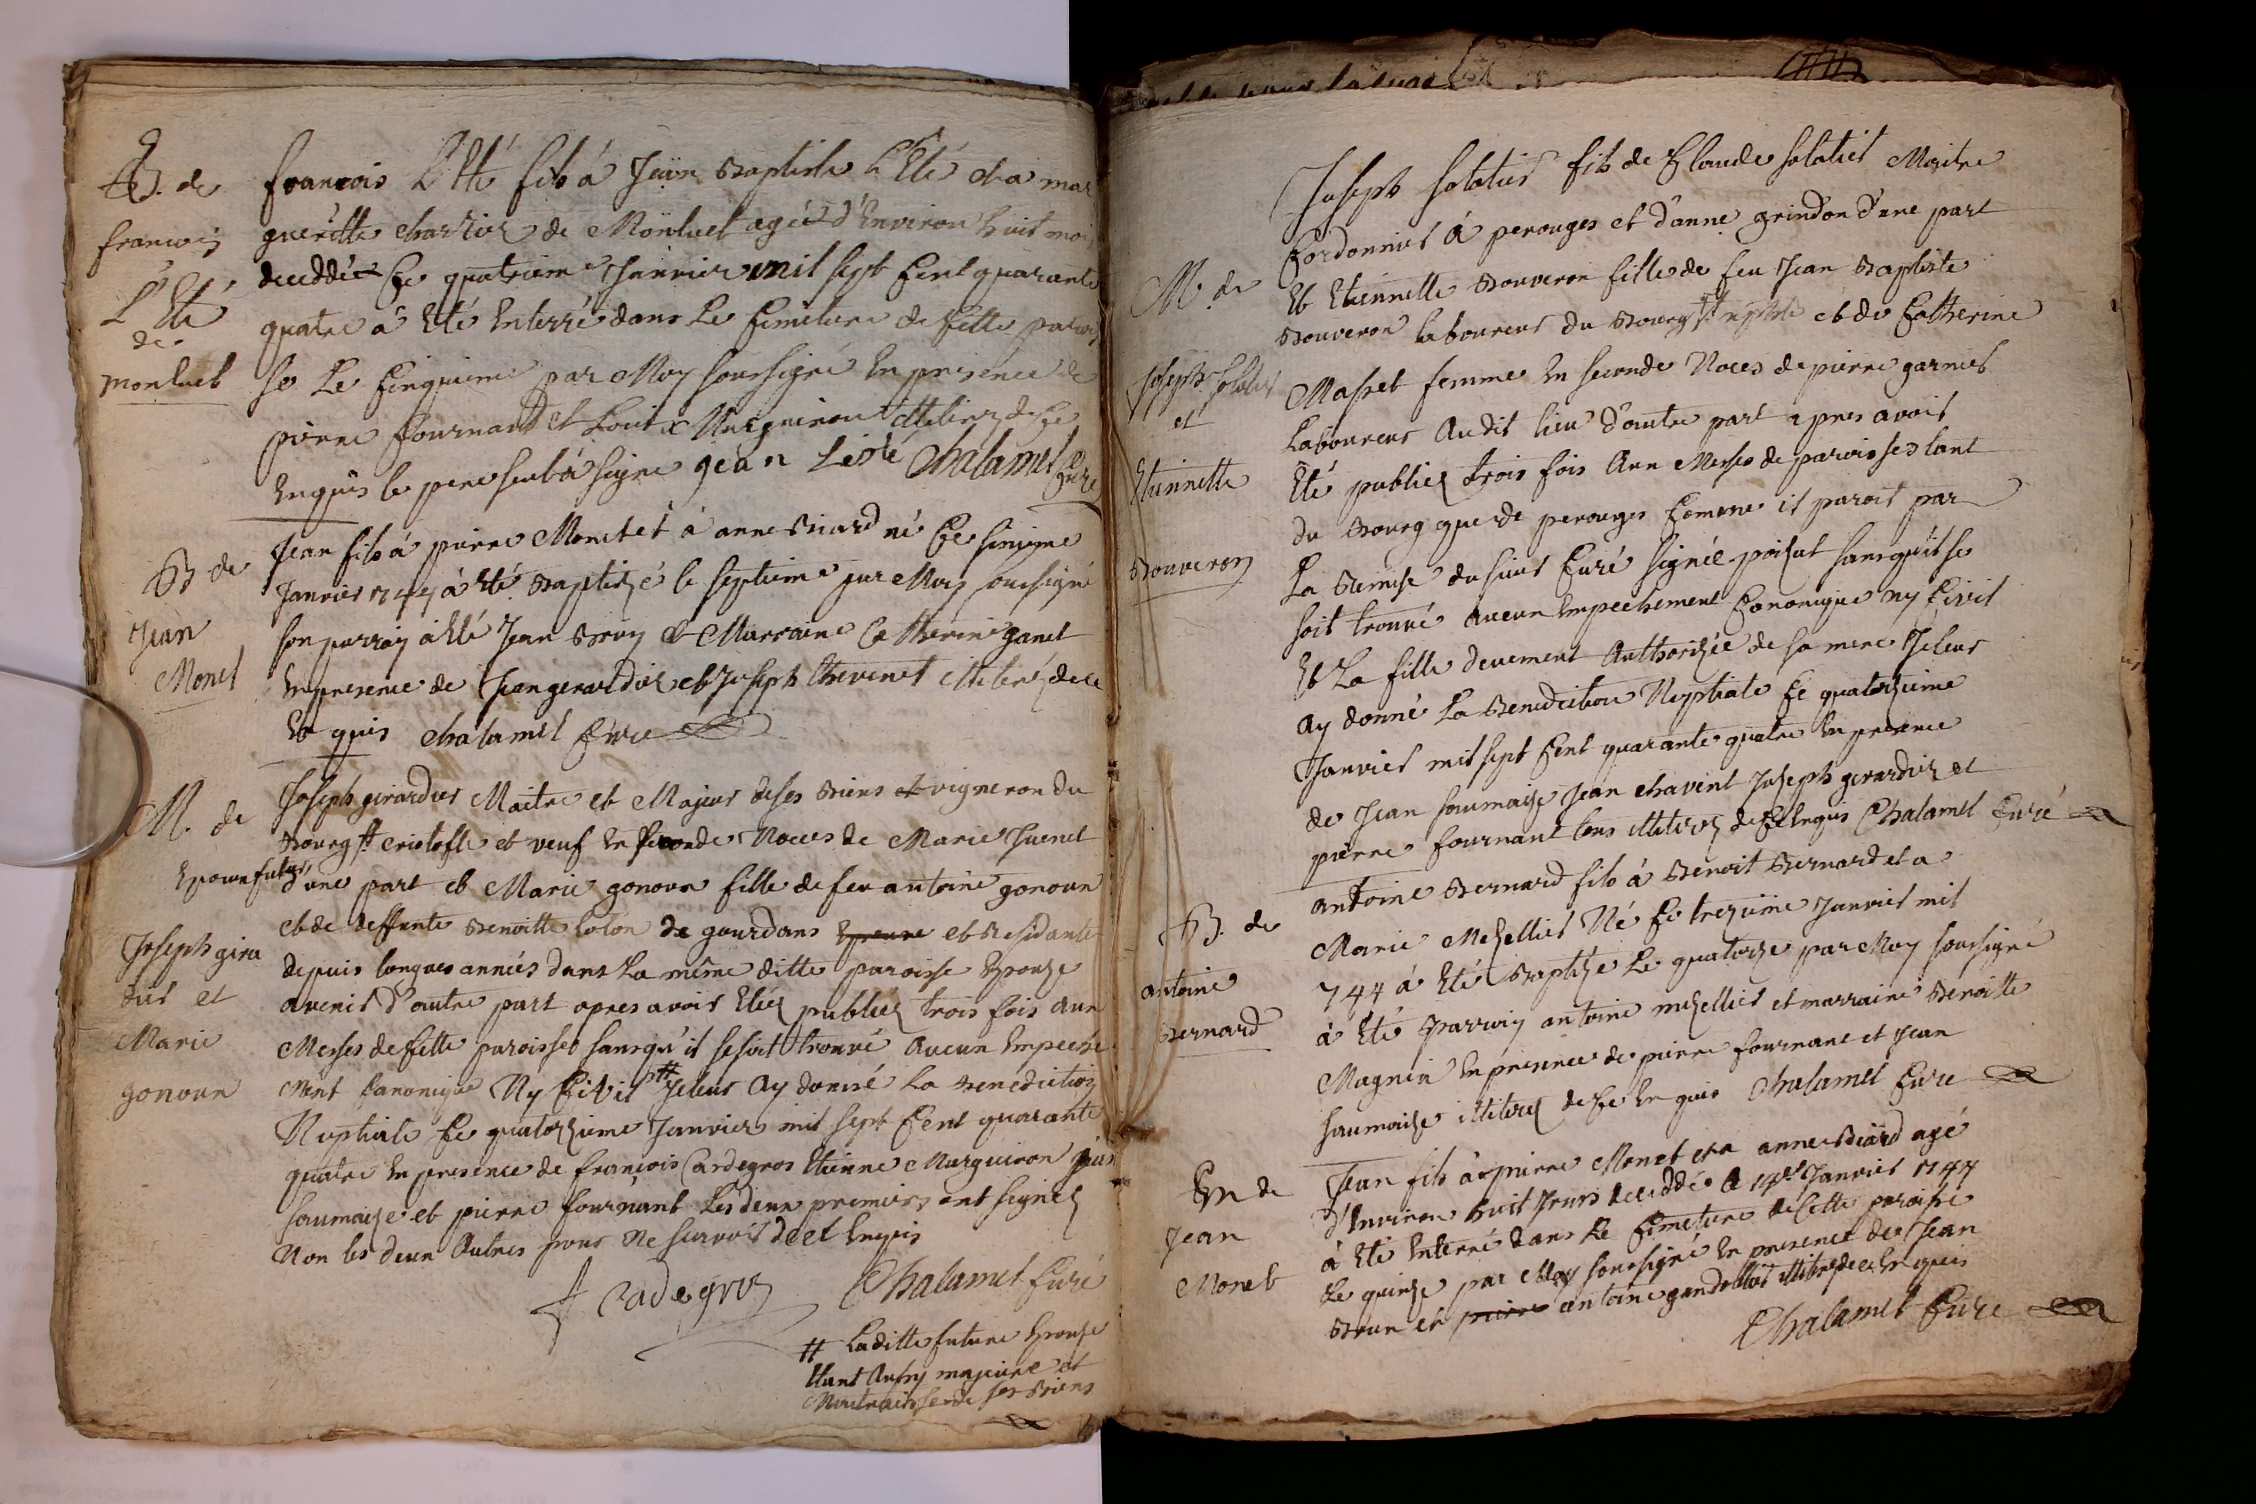 B. de
francois
L'Eté
de
montluel
francois L'Eté fils à Jean Baptiste L'Eté et a mar
gueritte charrier de Montluel agé d'Environ huit mois
deceddé Ce quatrieme Janvier mil sept Cent quarante
quatre à Eté Enterré dans Le Cimetiere de Cette parois
se Le Cinquieme par Moy soussigné En presence de
pierre fournand et Louis Murguiron illiterez de Ce
Enquis le pere seul à signé jean Leté Chalamel Curé
B de
Jean
Monet
Jean fils à pierre Monet et à anne Biard né Ce sixieme
Janvier 1744 à Eté Baptizé le septieme par Moy soussigné
son parrain à Eté Jean Brun et Marraine Catherine ganet
En presence de Jean gerardier et Joseph Chevenet illiterés de ce
Enquis Chalamel Curé
M. de
Epoux futur
Joseph girar
dier et
Marie
gonoun
Joseph girardier Maitre et Majeur de ses Biens et vigneron du
Bourg St Cristofle et veuf En seconde Noces de Marie Juenet
d'une part et Marie gonoun fille de feu antoine gonoun
et de deffunte Benoitte Colon de gourdans Epouse et Residante
depuis longues années dans La même ditte paroisse Epouze
avenir d'autre part apres avoir Etéz publiéz trois fois aux
Messes de Cette paroisse sans qu'il se soit trouvé Aucun Empeche
ment Canonique Ny Civil # Je leur Ay donné La Benediction
Nuptiale Ce quatorzieme Janvier mil sept Cent quarante
quatre En presence de francois Cardegros Etienne Murguiron jean
saumaize et pierre fournant Les deux premiers ont signéz
Non les deux Autres pour Ne scavoir de et Enquis
Cadegros Chalamel Curé
# Laditte future Epouze
Etant Aussy majeure et
Maitraisse de ses Biens
M. de
Joseph solatier
et
Etiennette
Bouveron
Joseph solatier fils de Claude solatier Maitre
Cordonnier à perouges et d'anne grindon d'une part
Et Etiennette Bouveron fille de feu Jean Baptiste
Bouveron laboureur du Bourg St et de Catherine
Masset femme En seconde Noces de pierre garnier
Laboureur Audit lieu d'autre part apres avoir
Eté publiez trois fois Aux Messes de paroisses tant
du Bourg que de perouges Comme il paroit par
La Remise du sieur Curé signée poisat sans qu'il se
soit trouvé Aucun Empechement Canonique ny Civil
Et La fille deuement Authorisée de sa mere Je leur
Ay donné La Benediction Nuptiale Ce quatorzieme
Janvier mil sept Cent quarante quatre En presence
de Jean saumaize Jean chavent Joseph girardier et
pierre fournant tous illiterez de Ce Enquis Chalamel Curé
B. de
antoine
Bernard
antoine Bernard fils à Benoit Bernard et a
Marie Mezellier Né Ce trezieme Janvier mil
744 à Eté Baptizé Le quatorze par Moy soussigné
à Eté parrain antoine mezellier et marraine Benoitte
Magnin En presence de pierre fournant et Jean
saumaize illiterez de Ce Enquis Chalamel Curé
En de
Jean
Monet
Jean fils à pierre Monet et a anne Biard agé
d'Environ huit Jours deceddé Le 14e Janvier 1744
à Eté Enterré dans Le Cimetiere de Cette paroisse
Le quinze par Moy soussigné En presence de Jean
Brun et pierre antoine illiterés de ce Enquis
Chalamel Curé